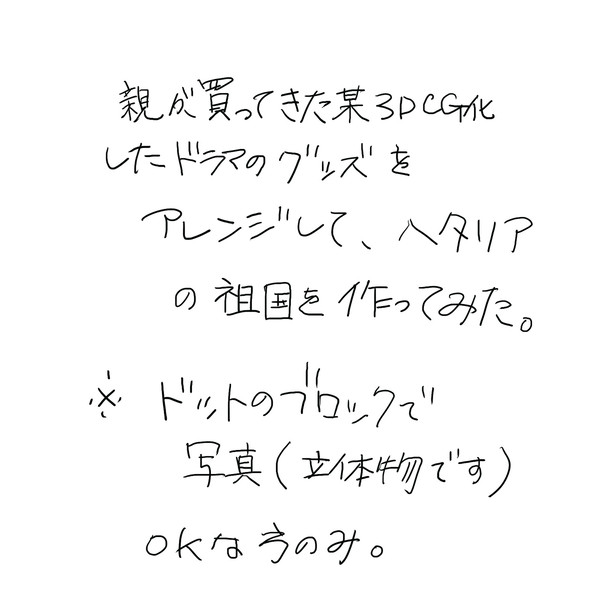 親が買ってきた某3DCG化
したドラマのグッズを
アレンジして、ヘタリア
の祖国を作ってみた。
※ ドットのブロックで
写真(立体物です)
OKな方のみ。